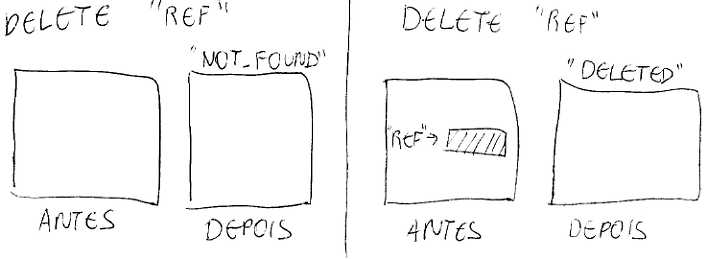 DELETE "REF"
"NOT_FOUND"
ANTES
DEPOIS
DELETE "REF"
"DELETED"
"REF"→
ANTES
DEPOIS